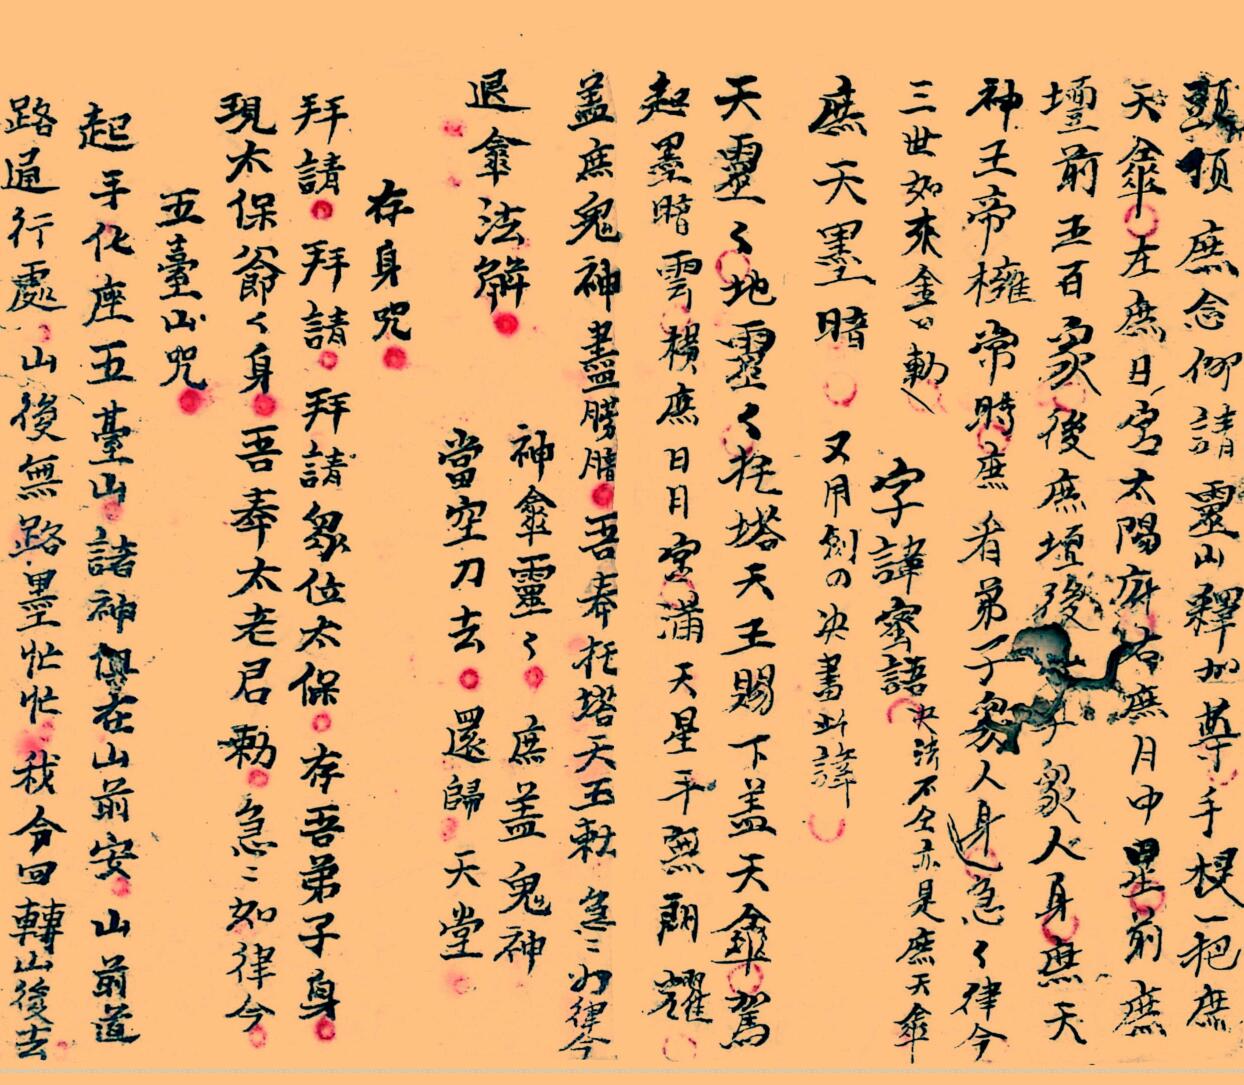 頭頂庶念仰請靈山釋加尊手梘一把庶
天傘左庶日宮太陽府右庶月中星前庶
壇前五百家後庶壇後子眾人身庶天
神王帝樁常時庶看弟子眾人身邊急々律令
三世如來金口勅
字諱蜜語决法不仝亦是庶天傘
庶天墨暗又用劍の决書斬諱
天靈々地靈々托塔天王賜下盖天傘駕
起墨暗雲横庶日月宮滿天星斗無朗耀
盖庶鬼神盡膀膪吾奉托塔天王勅急ミ如律令
退傘法觧
神傘靈々庶盖鬼神
當空刀去還歸天堂
存身咒
拜請拜請拜請眾位太保存吾弟子身
現太保爺々身吾奉太老君勅急ミ如律令
五臺山咒
起手化座五臺山諸神俱在山前安山前道
路通行處山後無路墨忙忙我今回轉山後去